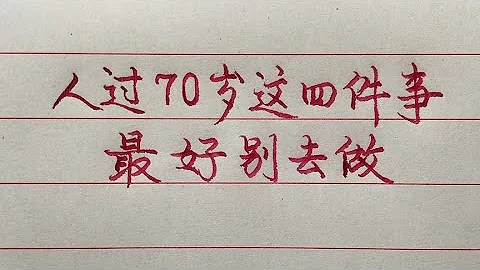 人过70岁这四件事
最好别去做